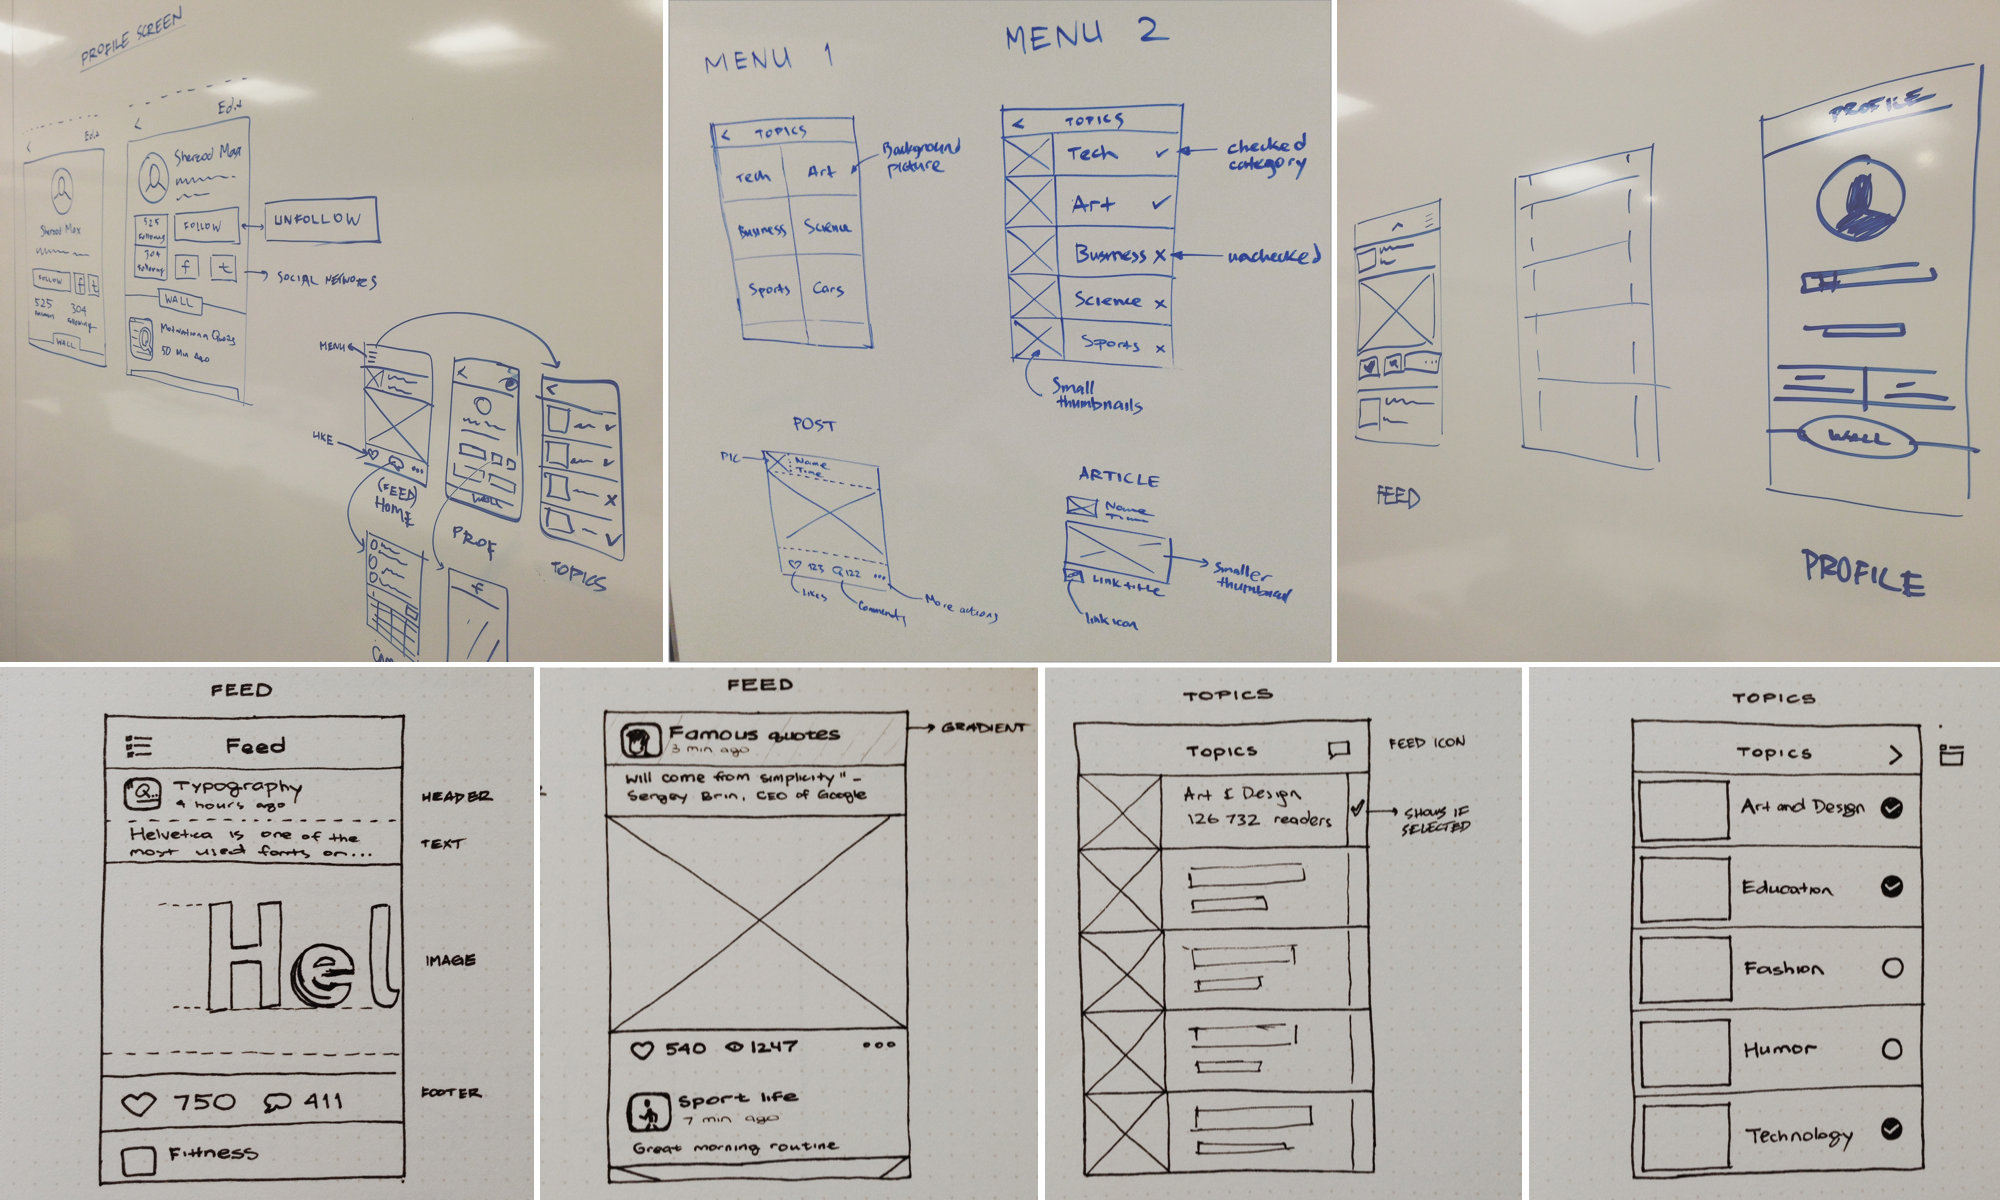 PROFILE SCREEN
Edit
Sherod Max
FOLLOW
f
t
525
304
WALL
Edit
Sherod Max
525
following
304
FOLLOW
UNFOLLOW
f
t
SOCIAL NETWORKS
WALL
50 Min Ago
MENU
LIKE
(FEED)
HOME
WALL
PROF
TOPICS
f
MENU 1
TOPICS
Tech
Art
Business
Science
Sports
Cars
Background
picture
MENU 2
TOPICS
Tech
Art
Business
Science
Sports
checked
category
unchecked
Small
thumbnails
POST
PIC
Name
Time
123
122
Likes
Comments
More actions
ARTICLE
Name
Time
Link title
Smaller
thumbnail
link icon
FEED
PROFILE
WALL
PROFILE
FEED
Feed
Typography
9 hours ago
Helvetica is one of the
most used fonts on...
Hel
750
411
Fittness
HEADER
TEXT
IMAGE
FOOTER
FEED
Famous quotes
3 min ago
GRADIENT
Will come from simplicity" -
Sergey Brin, CEO of Google
540
1247
Sport life
7 min ago
Great morning routine
TOPICS
TOPICS
FEED ICON
Art & Design
126 732 readers
SHOWS IF
SELECTED
TOPICS
TOPICS
Art and Design
Education
Fashion
Humor
Technology